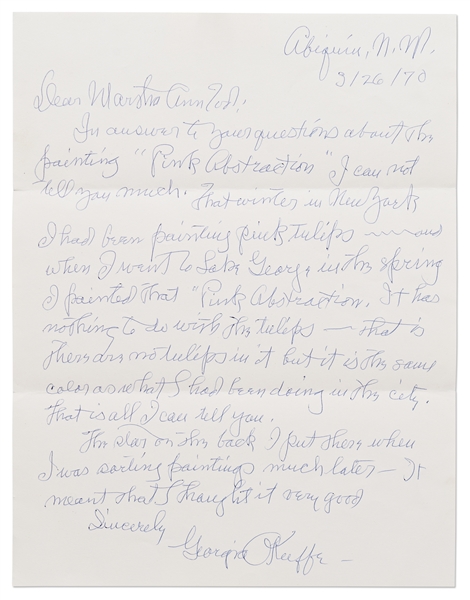 Abiquiu, N.M.
3/26/70
Dear Martha Ann
In answer to your questions about the
painting "Pink Abstraction" I can not
tell you much. That winter in New York
I had been painting pink tulips ~~~ and
when I went to Lake George in the spring
I painted that "Pink Abstraction. It has
nothing to do with the tulips — that is
there are no tulips in it but it is the same
color as what I had been doing in the city.
That is all I can tell you.
The star on the back I put there when
I was sorting paintings much later — It
meant that I thought it very good
Sincerely
Georgia O'Keeffe —